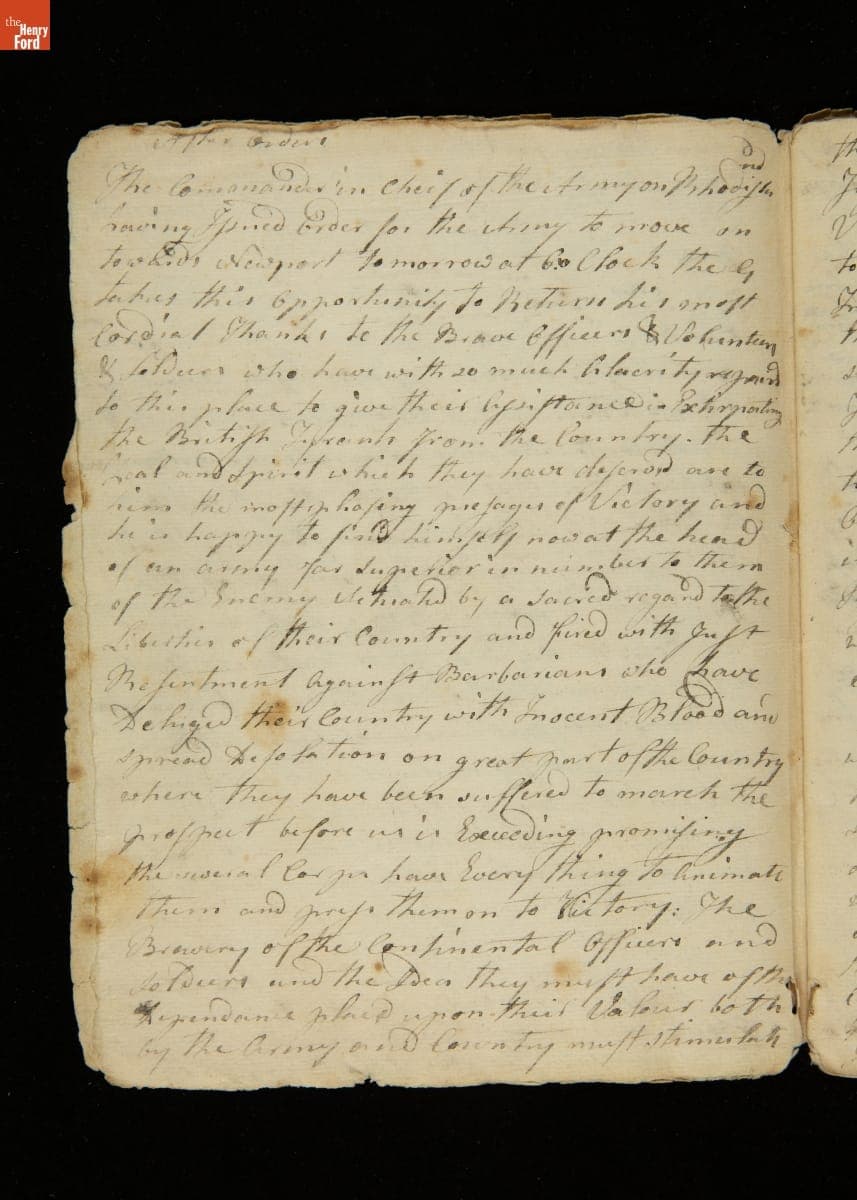 the
Henry
Ford
After Orders
The Comanander in Cheif of the Army on Rhodisla
nd
having Isued Order for the Army to move on
towards Newport tomorrow at 6 o Clock the G
takes this Opportunity to Return his most
Cordial Thanks to the Brave Officers & Volunteers
& Solders who have with so much Alacrity repaird
to this place to give their Assistance in Extirpating
the British Tyrants from the Country. the
Zeal and Spirit which they have
him the most pleasing presages of Victory and
he is happy to find himself now at the head
of an army far Superior in number to them
of the Enemy Actuated by a sacred regard to the
Liberties of their Country and fired with Just
Resentment Against Barbarians who have
Deluged their Country with Inocent Blood and
spread Desolation on great part of the Country
where they have been suffered to march the
prospect before us is Exceeding promising
the several Corps have Every thing to Animate
them and press them on to Victory: The
Bravery of the Continental Officers and
Solders and the Idea they must have of the
Dependance placd upon their Valour both
by the Army and Country must stimulate